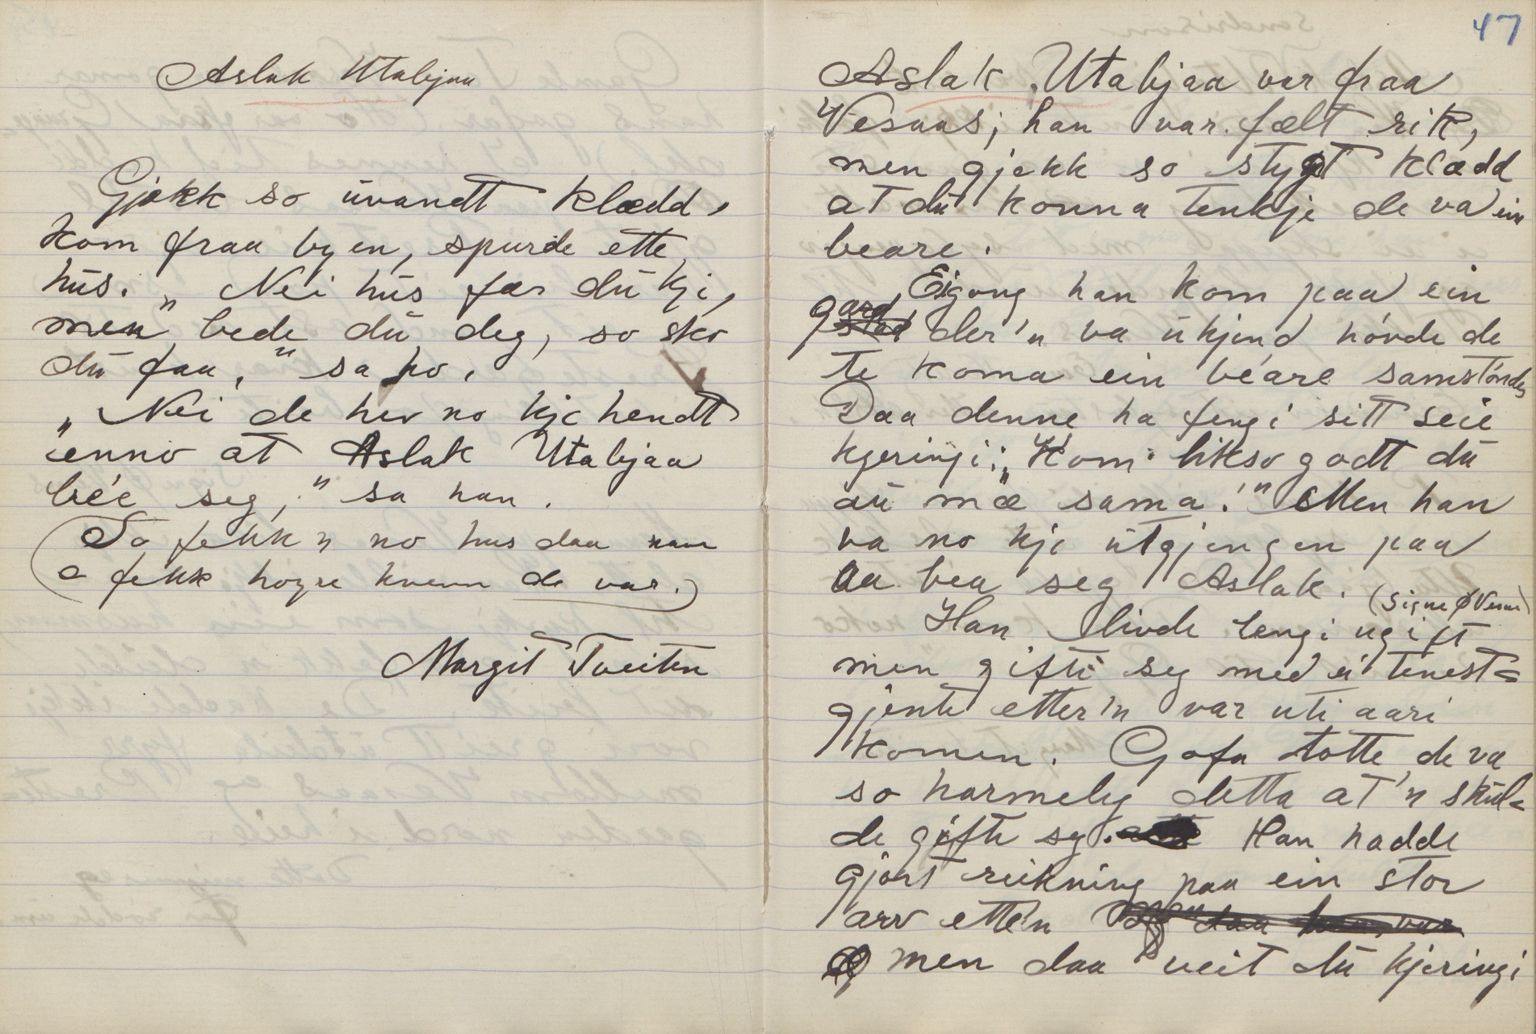 Aslak Utabjaa
Gjekk so uvandt klædd,
kom fraa byen, spurde ette
hus. "Nei hus fær du kji,
men bede du deg, so sko
du faa," sa ho.
"Nei de hev no kje hendt
enno at Aslak Utabjaa
bée seg," sa han.
(So fekk'n no hus daa han
o fekk høyre kvenn de var.)
Margit Tveiten
47
Aslak Utabjaa var fraa
Vesaas; han var fælt rik,
men gjekk so stygt klædd
at du konna tenkje de va ein
beare.
Eigong han kom paa ein
gard der'n va ukjend hövde de
te koma ein béare samstöndes
Daa denne ha fengi sitt seie
kjeringi: "Kom likso godt du
au mæ sama!" Men han
va no kje utgjengen paa
aa bea seg Aslak.
(Signe Ø Vesaas)
Han livde lengi ugift
men gifti seg med ei tenest=
gjente etter'n var uti aari
komen. Gofa totte de va
so harmeleg detta at'n skul=
de gifte seg. Han hadde
gjort reikning paa ein stor
arv ette'n
men daa veit du kjeringi